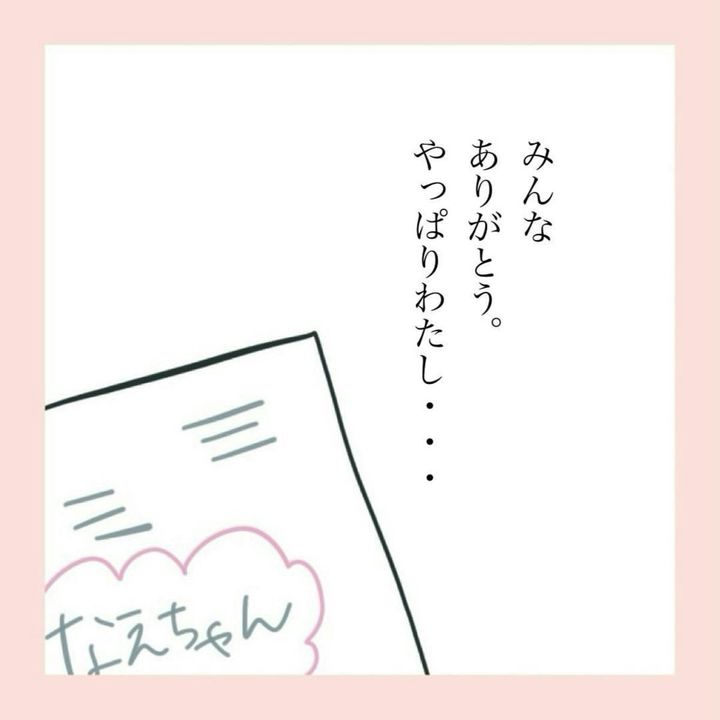 みんな
ありがとう。
やっぱりわたし・・・
なえちゃん